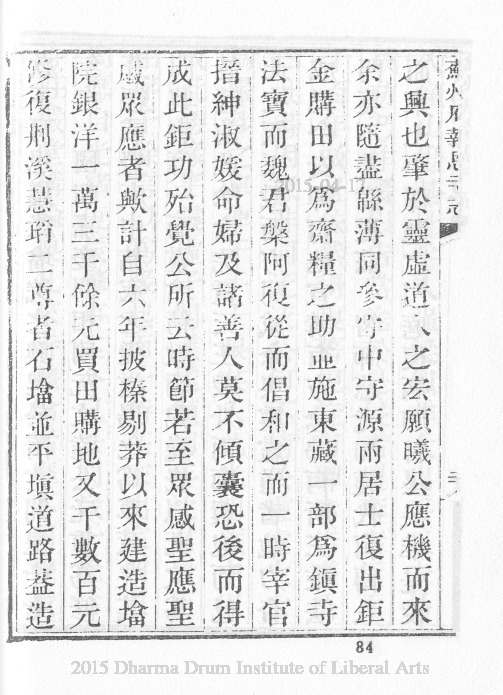 蘇州府報恩寺志
之興也肇於靈虛道人之宏願曦公應機而來
余亦隨盡緜薄同參寄中守源兩居士復出鉅
金購田以為齋糧之助並施東藏一部為鎮寺
法寶而魏君槃阿復從而倡和之而一時宰官
搢紳淑媛命婦及諸善人莫不傾囊恐後而得
成此鉅功殆覺公所云時節若至眾感聖應聖
感眾應者歟計自六年披榛剔莽以來建造墖
院銀洋一萬三千餘元買田購地又千數百元
修復荆溪慧二尊者石墖並平塡道路葢造
84
2015-04-17
2015 Dharma Drum Institute of Liberal Arts